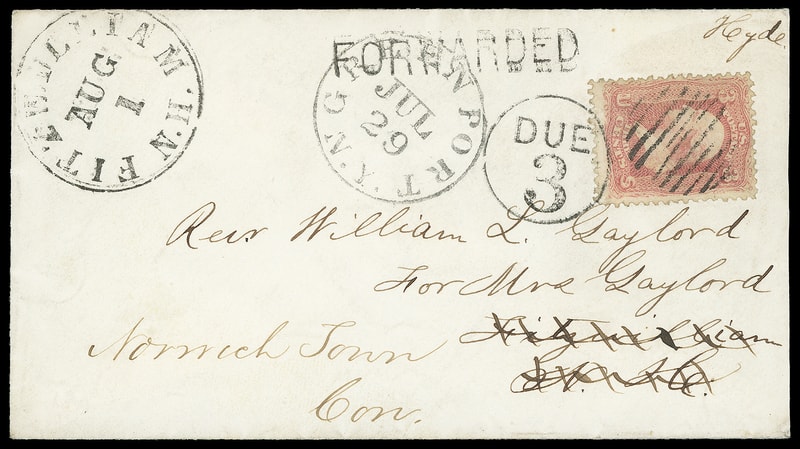 Hyde.
FORWARDED
FITZWILLIAM. N.H.
AUG
1
GREENPORT. N.Y.
JUL
29
DUE
3
Rev William L. Gaylord
For Mrs Gaylord
Fitzwilliam
N. H.
Norwich Town
Con.